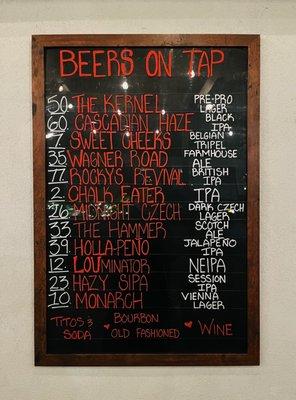 BEERS ON TAP
50. THE KERNEL PRE-PRO LAGER
60. CASCADIAN HAZE BLACK IPA
7. SWEET CHEEKS BELGIAN TRIPEL
35 WAGNER ROAD FARMHOUSE ALE
77. ROCKY'S REVIVAL BRITISH IPA
2. CHALK EATER IPA
26 MIDNIGHT CZECH DARK CZECH LAGER
33 THE HAMMER SCOTCH ALE
39 HOLLA-PEÑO JALAPEÑO IPA
12. LOUMINATOR NEIPA
23 HAZY SIPA SESSION IPA
10. MONARCH VIENNA LAGER
TITOS & SODA
BOURBON OLD FASHIONED
WINE